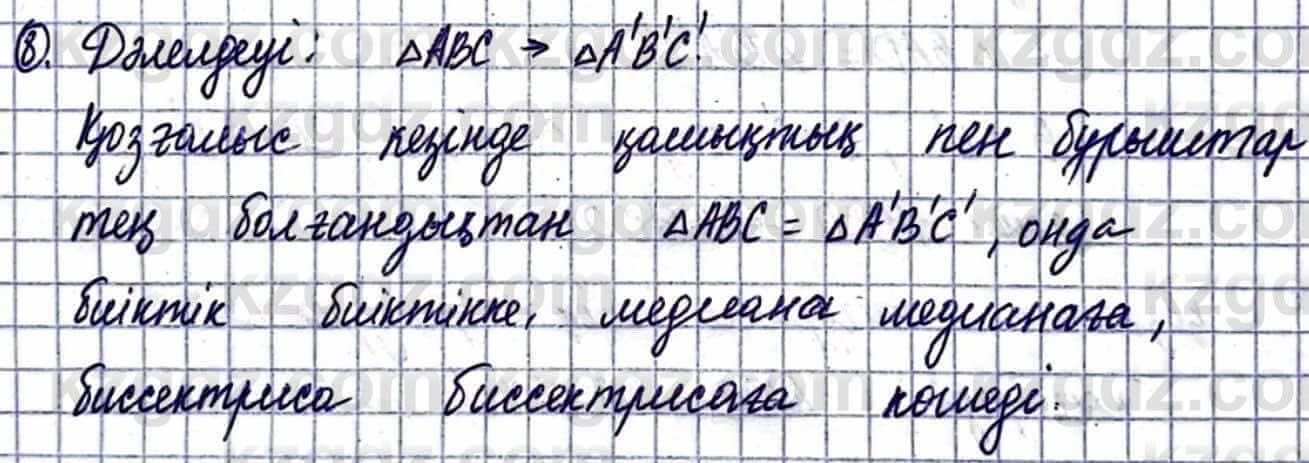 8. Дәлелдеуі: △ABC → △A'B'C'.
Қозғалыс кезінде қашықтық пен бұрыштар
тең болғандықтан △ABC = △A'B'C', онда
биіктік биіктікке, медиана медианаға,
биссектриса биссектрисаға көшеді.